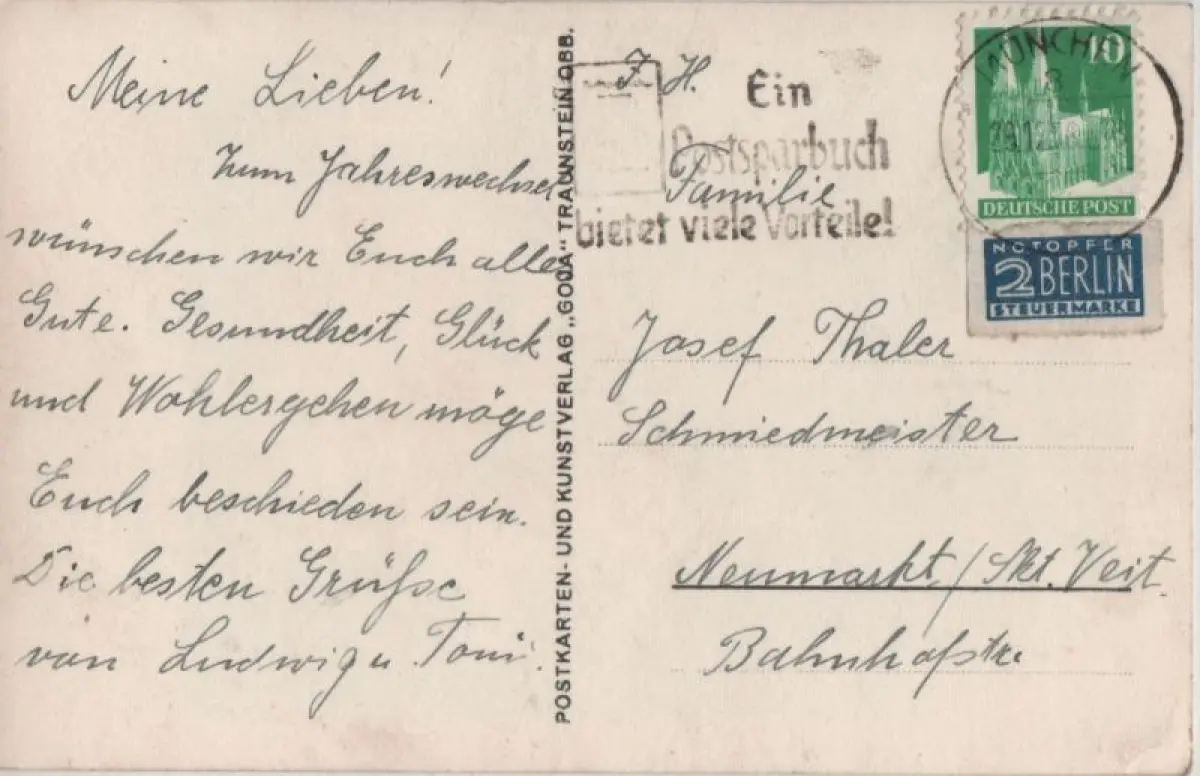 Meine Lieben!
Zum Jahreswechsel
wünschen wir Euch alles
Gute. Gesundheit, Glück
und Wohlergehen möge
Euch beschieden sein.
Die besten Grüße
von Ludwig u. Toni.
POSTKARTEN- UND KUNSTVERLAG „GOJA“ TRAUNSTEIN OBB.
Ein
Postsparbuch
bietet viele Vorteile!
MÜNCHEN
10
DEUTSCHE POST
NOTOPFER
2 BERLIN
STEUERMARKE
F. H.
Familie
Josef Thaler
Schmiedmeister
Neumarkt/Skt. Veit.
Bahnhofstr.